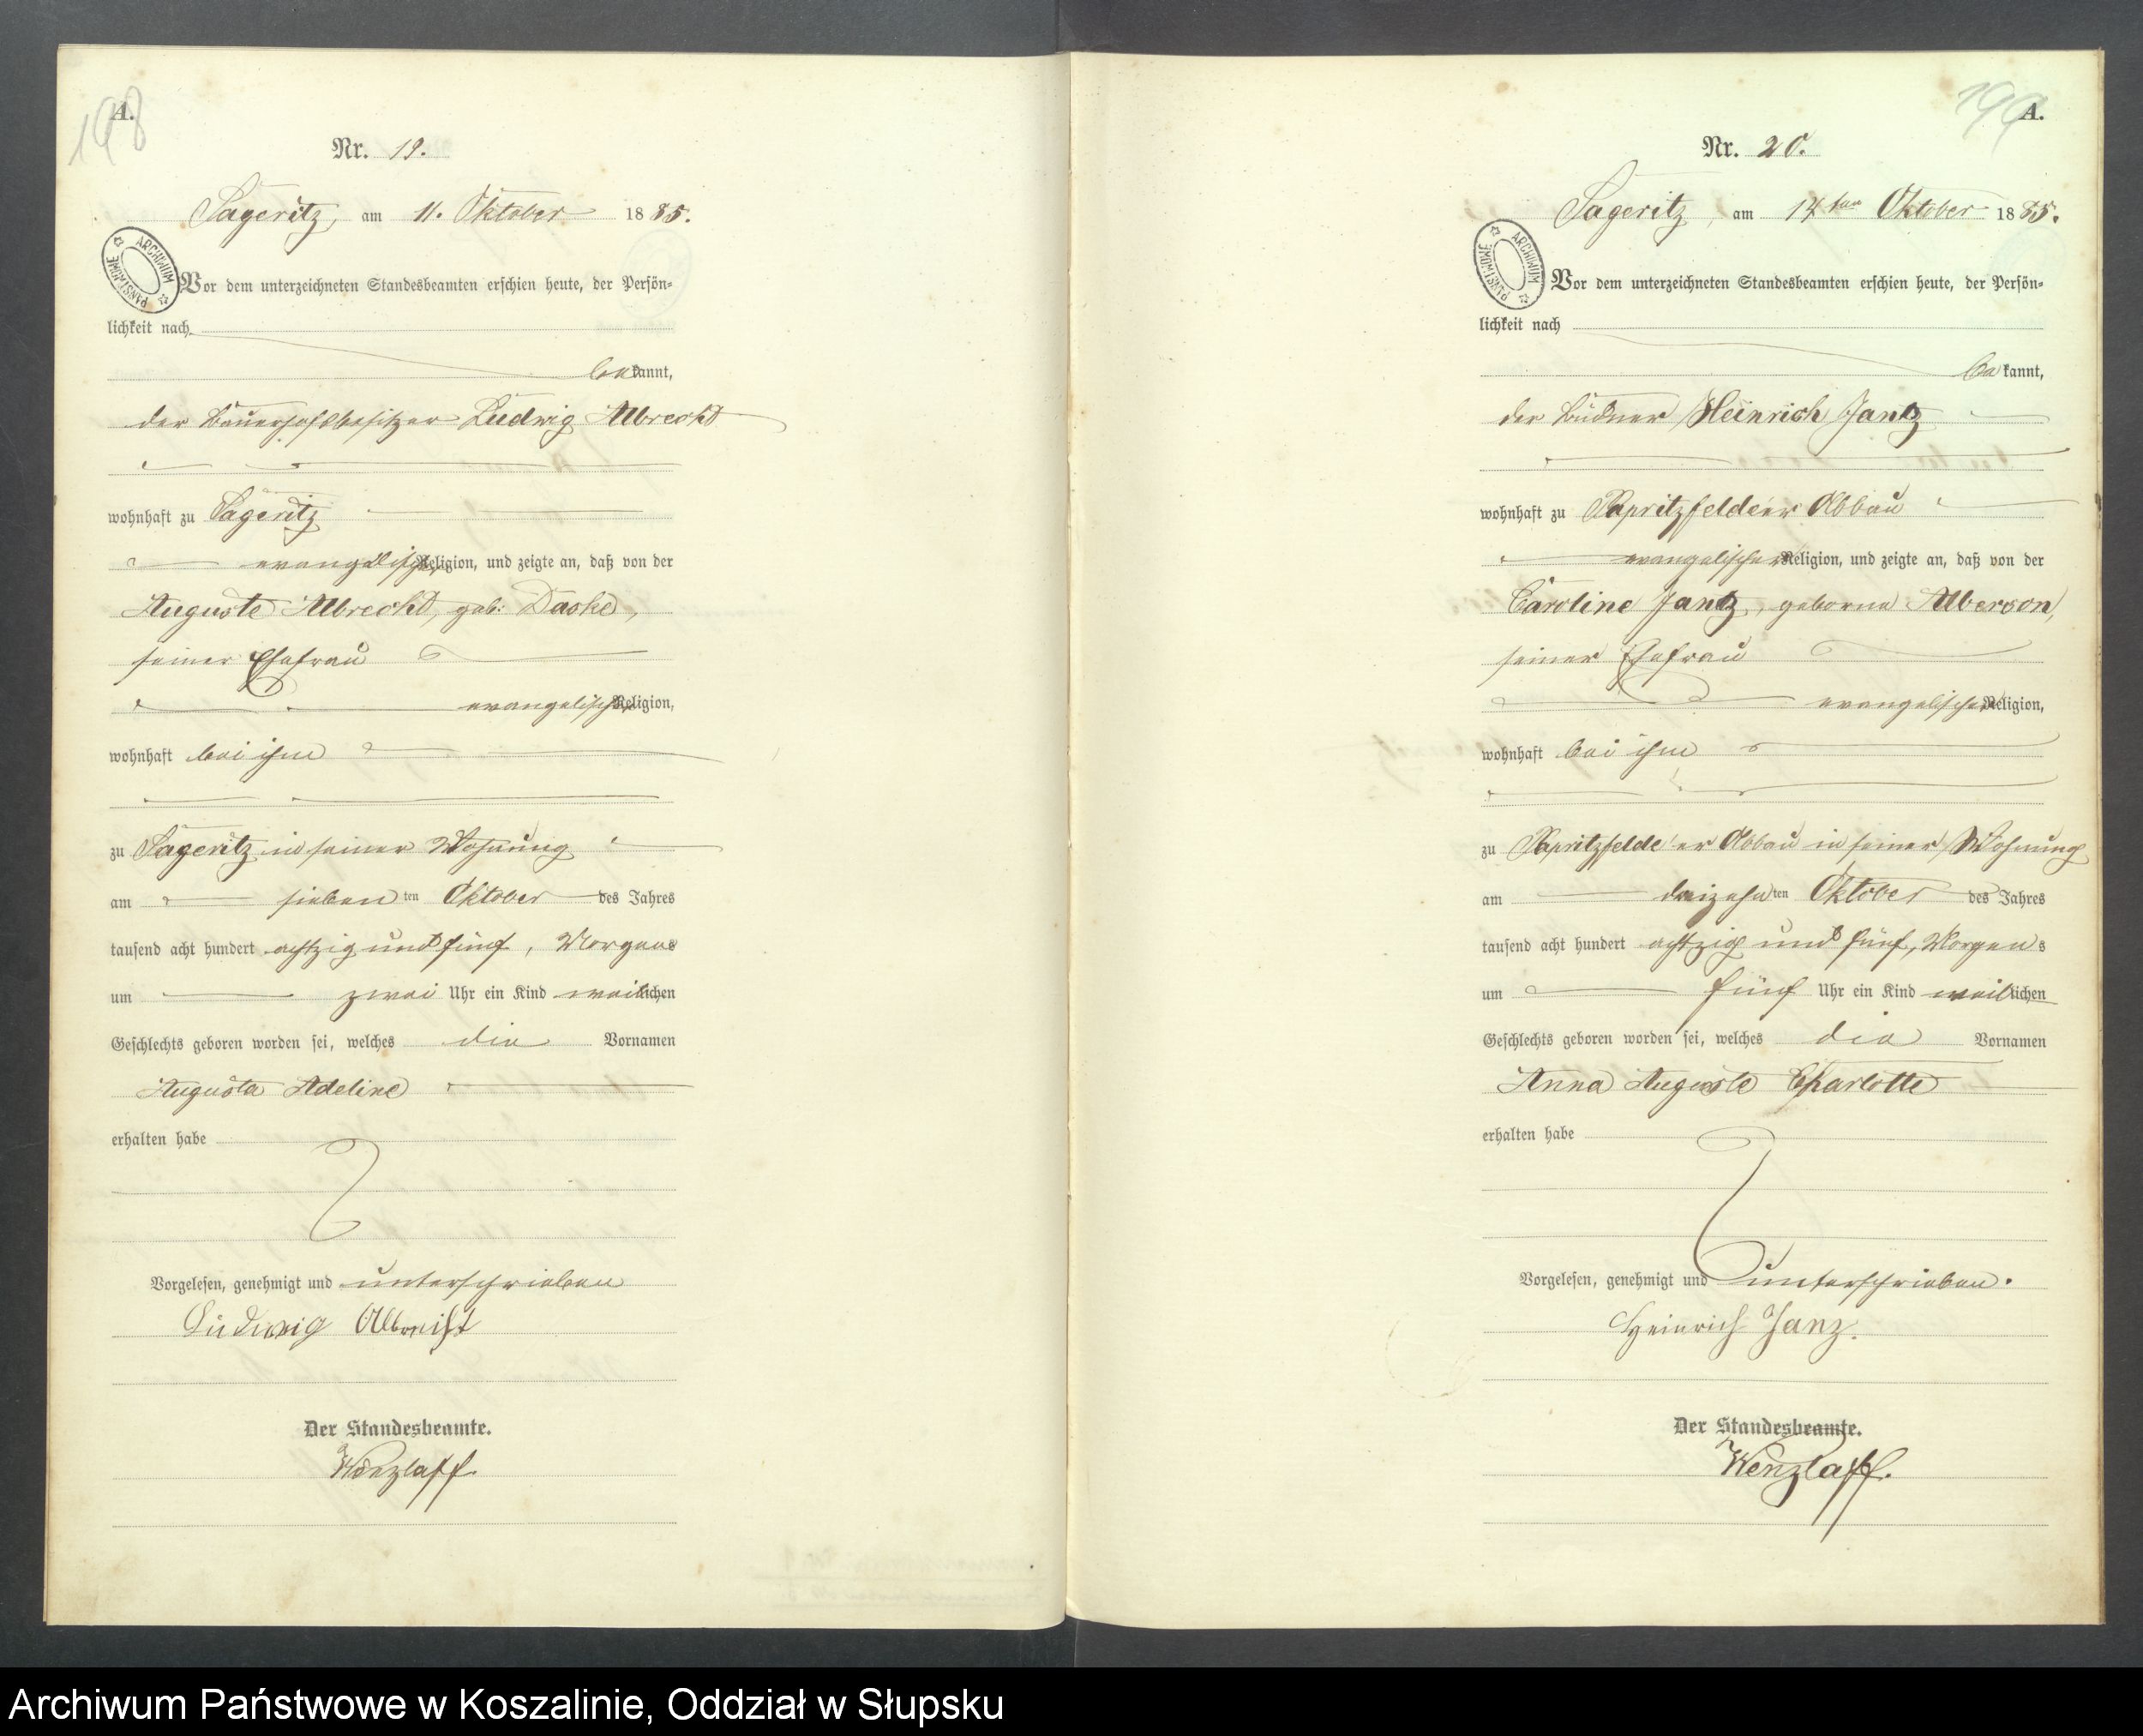 198
A.
Nr. 19.
Sageritz, am 11. Oktober 1885.
ARCHIWUM PAŃSTWOWE
Vor dem unterzeichneten Standesbeamten erschien heute, der Persön-
lichkeit nach
bekannt,
der Bauerhofsbesitzer Ludwig Albrecht
wohnhaft zu Sageritz
evangelischer Religion, und zeigte an, daß von der
Auguste Albrecht, geb: Daske,
seiner Ehefrau
evangelischer Religion,
wohnhaft bei ihm
zu Sageritz in seiner Wohnung
am siebenten Oktober des Jahres
tausend acht hundert achtzig und fünf, Morgens
um zwei Uhr ein Kind weiblichen
Geschlechts geboren worden sei, welches die Vornamen
Augusta Adeline
erhalten habe
Vorgelesen, genehmigt und unterschrieben
Ludwig Albrecht
Der Standesbeamte.
Wenzlaff.
199
A.
Nr. 20.
Sageritz, am 14ten Oktober 1885.
ARCHIWUM PAŃSTWOWE
Vor dem unterzeichneten Standesbeamten erschien heute, der Persön-
lichkeit nach
bekannt,
der Büdner Heinrich Jantz
wohnhaft zu Papritzfelde'er Abbau
evangelischer Religion, und zeigte an, daß von der
Caroline Jantz, geborne Alberson,
seiner Ehefrau
evangelischer Religion,
wohnhaft bei ihm
zu Papritzfelde'er Abbau in seiner Wohnung
am dreizehnten Oktober des Jahres
tausend acht hundert achtzig und fünf, Morgens
um fünf Uhr ein Kind weiblichen
Geschlechts geboren worden sei, welches die Vornamen
Anna Auguste Charlotte
erhalten habe
Vorgelesen, genehmigt und unterschrieben.
Heinrich Janz.
Der Standesbeamte.
Wenzlaff.
Archiwum Państwowe w Koszalinie, Oddział w Słupsku